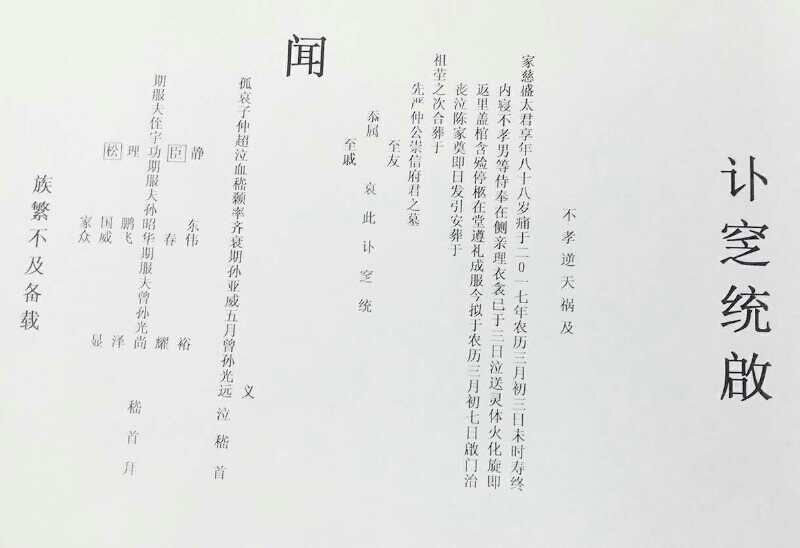 讣窆统啟
不孝逆天祸及
家慈盛太君享年八十八岁痛于二0一七年农历三月初三日未时寿终
内寝不孝男等侍奉在侧亲理衣衾已于三日泣送灵体火化旋即
返里盖棺含殓停柩在堂遵礼成服今拟于农历三月初七日啟门治
丧泣陈家奠即日发引安葬于
祖茔之次合葬于
先严仲公崇信府君之墓
至友
忝属 哀此讣窆统
至戚
闻
孤哀子仲超泣血嵇颡率齐衰期孙亚威五月曾孙光远 泣嵇首
义
静 东伟 裕
臣 春 耀
期服夫侄字功期服夫孙昭华期服夫曾孙光尚
理 鹏飞 泽 嵇首拜
松 国威 显
家众
族繁不及备载